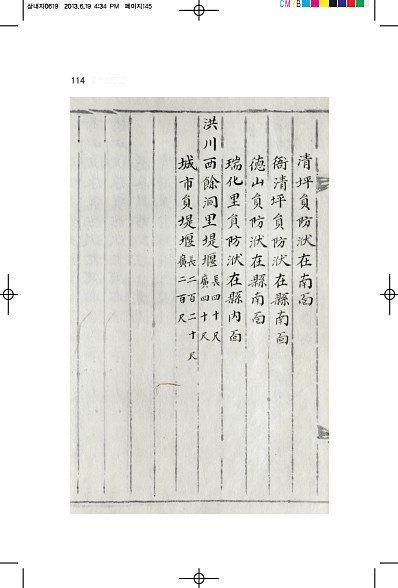 삼내지0619 2013.6.19 4:34 PM 페이지145
CM B
114
清坪員防洑在南面
衙清坪員防洑在縣南面
德山員防洑在縣南面
瑞化里員防洑在縣內面
洪川西餘洞里堤堰長四十尺廣四十尺
城市員堤堰長二百二十尺廣二百尺